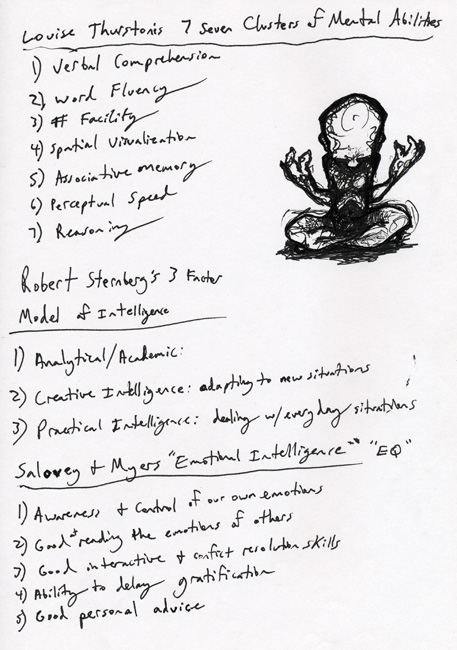 Louise Thurston's 7 Seven Clusters of Mental Abilities
1) Verbal Comprehension
2) Word Fluency
3) # Facility
4) Spatial Visualization
5) Associative memory
6) Perceptual Speed
7) Reasoning
Robert Sternberg's 3 Factor
Model of Intelligence
1) Analytical/Academic:
2) Creative Intelligence: adapting to new situations
3) Practical Intelligence: dealing w/everyday situations
Salovey + Myers "Emotional Intelligence" "EQ"
1) Awareness + control of our own emotions
2) Good at reading the emotions of others
3) Good interactive + conflict resolution skills
4) Ability to delay gratification
5) Good personal advice